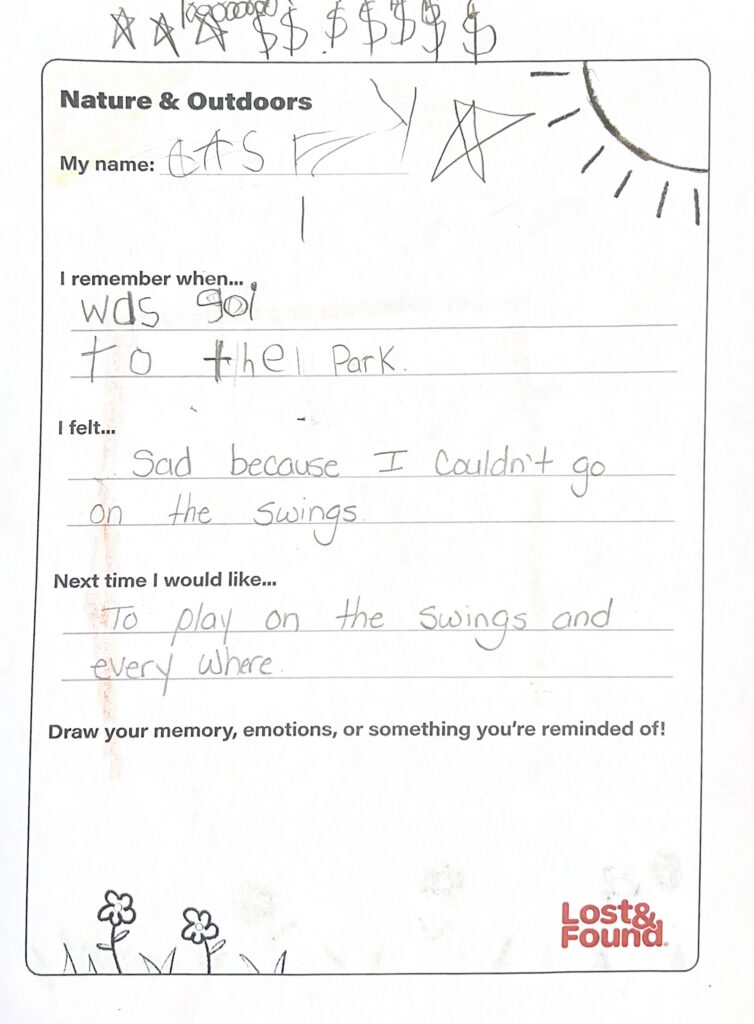 $ $ $ $ $ $ $
Nature & Outdoors
My name: CAS
I remember when...
was goi
to the Park.
I felt...
Sad because I couldn't go
on the swings.
Next time I would like...
To play on the swings and
every where.
Draw your memory, emotions, or something you're reminded of!
Lost&
Found